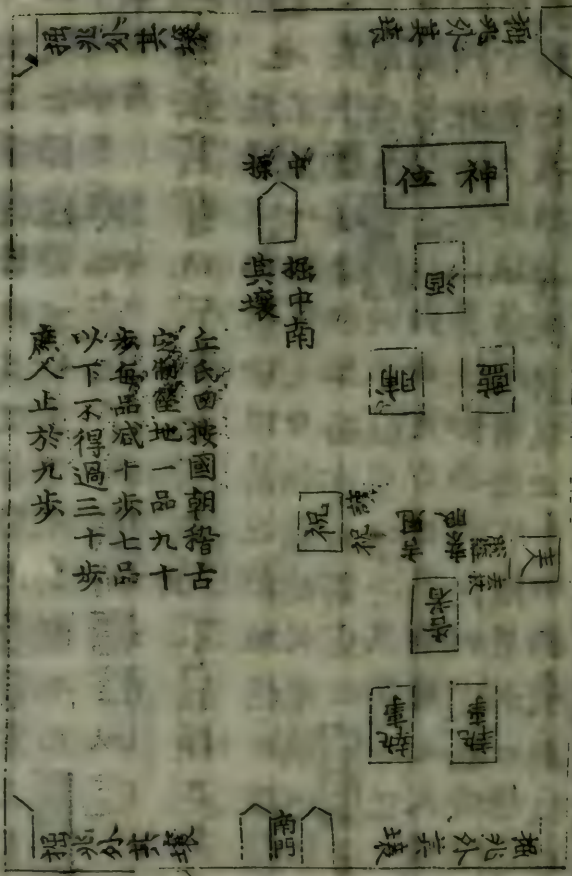 掘兆外其壤
掘兆外其壤
神位
中標
掘中南
其壤
酒
脯
醢
丘氏曰按國朝稽古
定制塋地一品九十
步每品減十步七品
以下不得過三十步
庶人止於九步
祝
讀祝
告者
執事
執事
掘兆外其壤
南門
掘兆外其壤